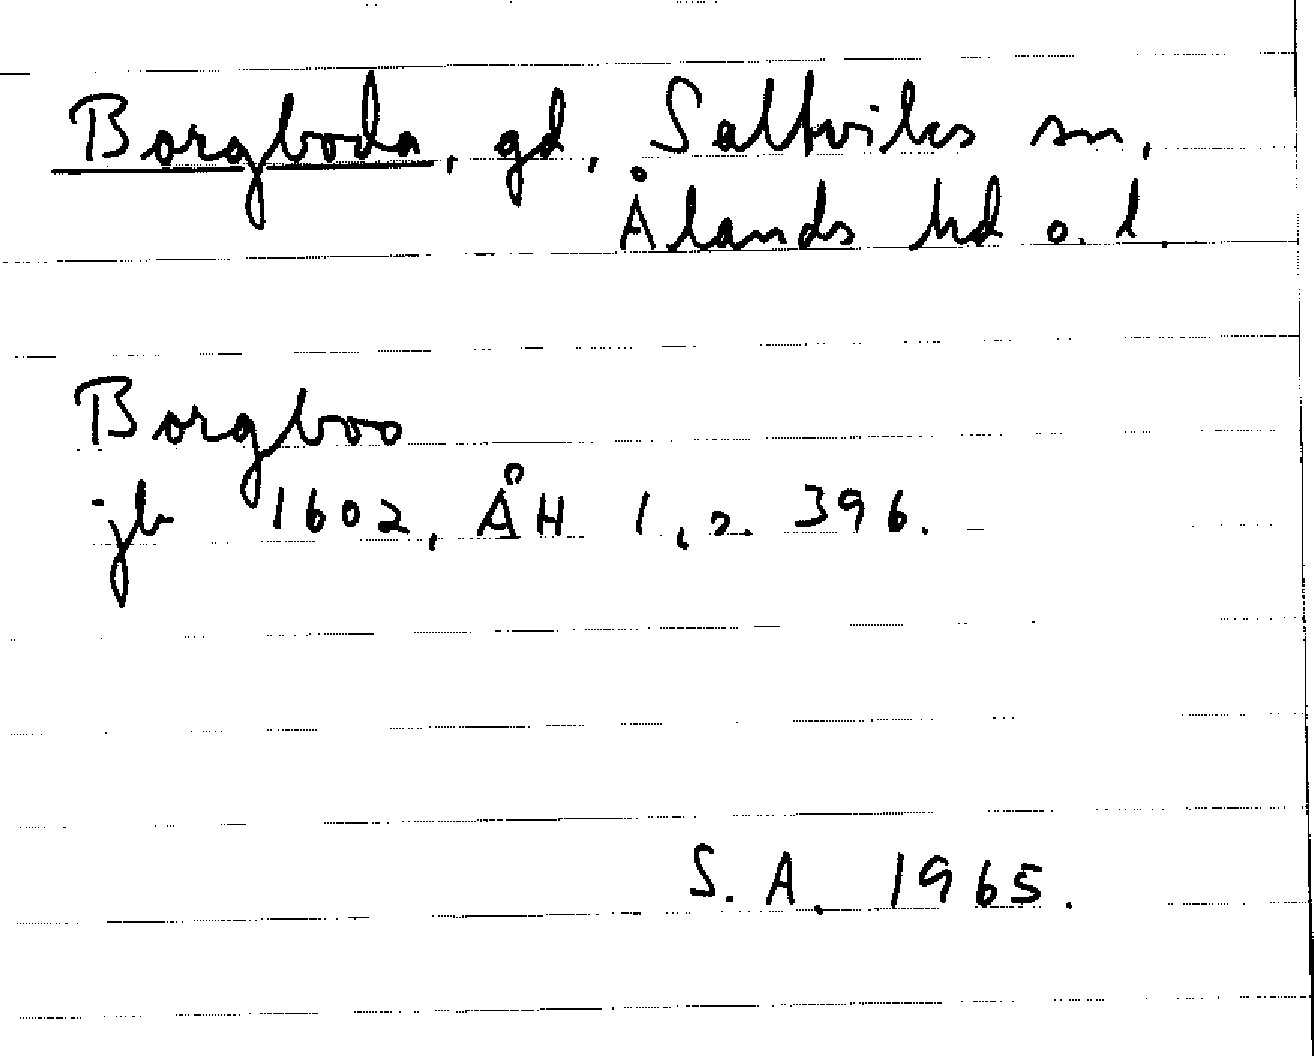 Borgboda, gd, Saltviks sn,
Ålands hd o. l.
Borgboo
jb 1602, ÅH 1,2. 396.
S. A. 1965.